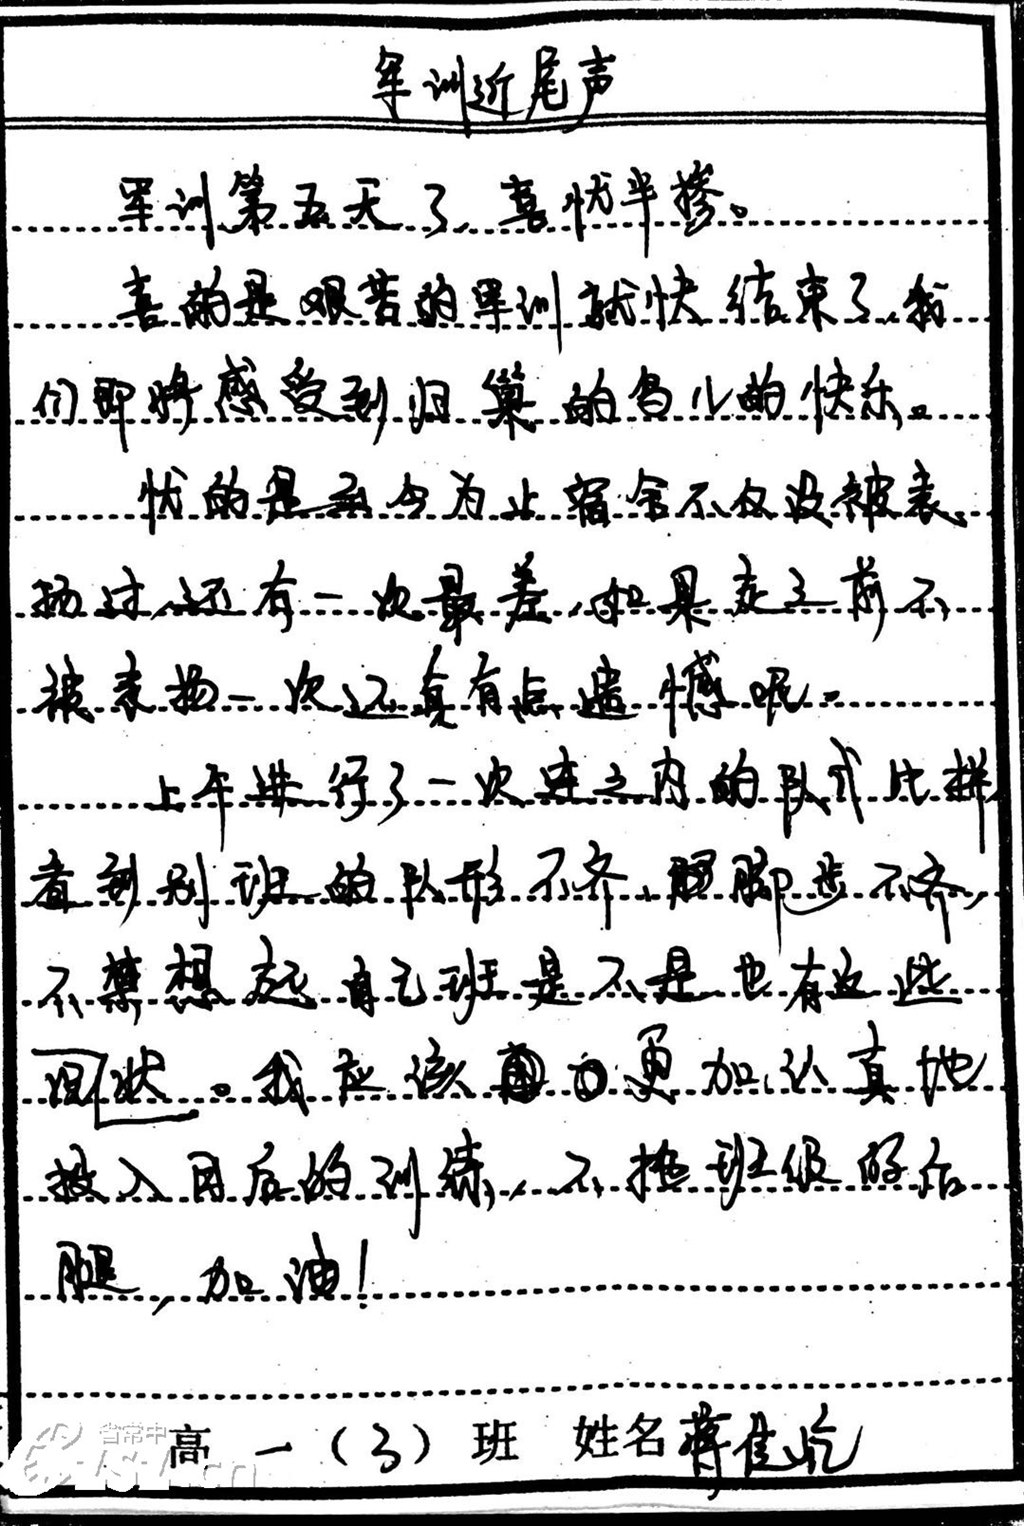 军训近尾声
军训第五天了,喜忧半掺。
喜的是艰苦的军训就快结束了,我
们即将感受到归巢的鸟儿的快乐。
忧的是至今为止宿舍不仅没被表
扬过,还有一次最差,如果走之前不
被表扬一次还真有点遗憾呢。
上午进行了一次连之内的队式比拼,
看到别班的队形不齐、脚步不齐,
不禁想起自己班是不是也有这些
状。我应该更加认真地
投入日后的训练,不拖班级的后
腿,加油!
高一(3)班 姓名蒋佳
省常中